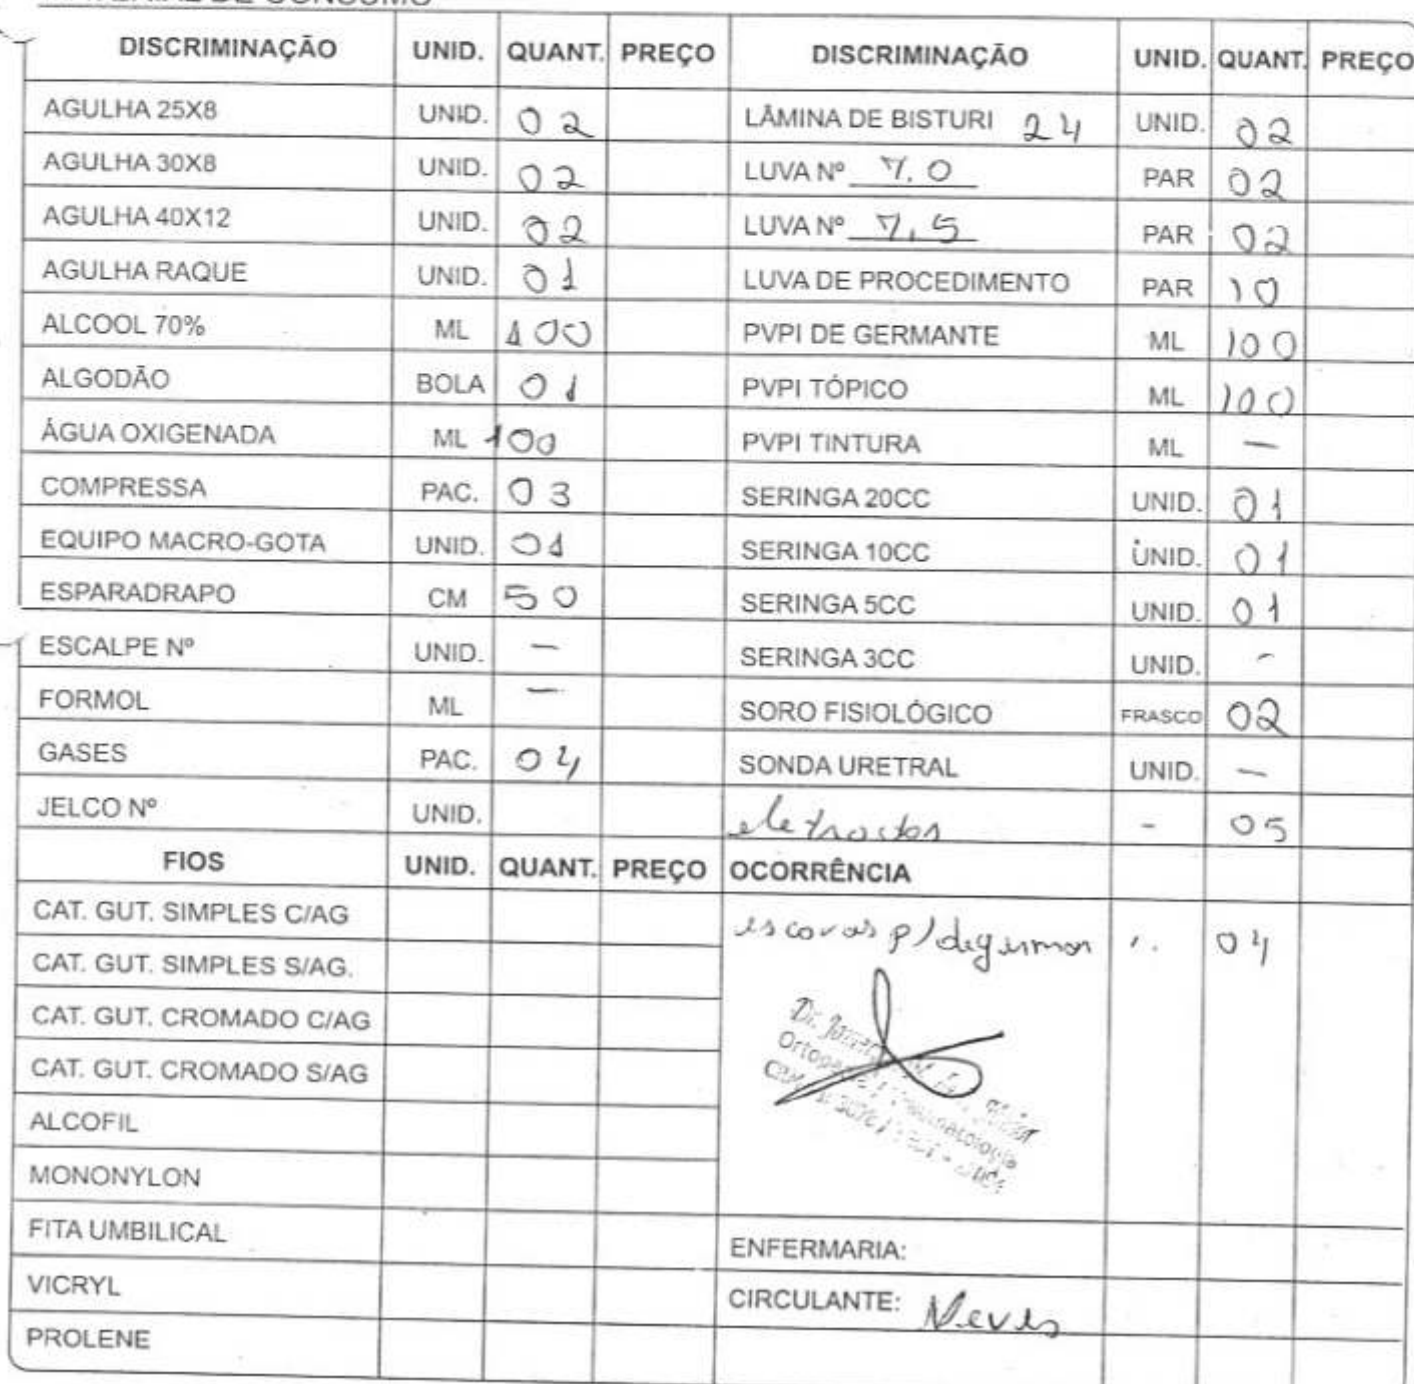 DE CONSUMO
DISCRIMINAÇÃO UNID. QUANT. PREÇO DISCRIMINAÇÃO UNID. QUANT. PREÇO
AGULHA 25X8 UNID. 02 LÂMINA DE BISTURI 24 UNID. 02
AGULHA 30X8 UNID. 02 LUVA Nº 7.0 PAR 02
AGULHA 40X12 UNID. 02 LUVA Nº 7,5 PAR 02
AGULHA RAQUE UNID. 01 LUVA DE PROCEDIMENTO PAR 10
ALCOOL 70% ML 100 PVPI DE GERMANTE ML 100
ALGODÃO BOLA 01 PVPI TÓPICO ML 100
ÁGUA OXIGENADA ML 100 PVPI TINTURA ML —
COMPRESSA PAC. 03 SERINGA 20CC UNID. 01
EQUIPO MACRO-GOTA UNID. 01 SERINGA 10CC UNID. 01
ESPARADRAPO CM 50 SERINGA 5CC UNID. 01
ESCALPE Nº UNID. — SERINGA 3CC UNID. -
FORMOL ML — SORO FISIOLÓGICO FRASCO 02
GASES PAC. 04 SONDA URETRAL UNID. —
JELCO Nº UNID. - 05
FIOS UNID. QUANT. PREÇO OCORRÊNCIA
CAT. GUT. SIMPLES C/AG escovas p/ degermar 04
CAT. GUT. SIMPLES S/AG.
CAT. GUT. CROMADO C/AG Dr.
CAT. GUT. CROMADO S/AG
ALCOFIL
MONONYLON
FITA UMBILICAL ENFERMARIA:
VICRYL CIRCULANTE: Neves
PROLENE